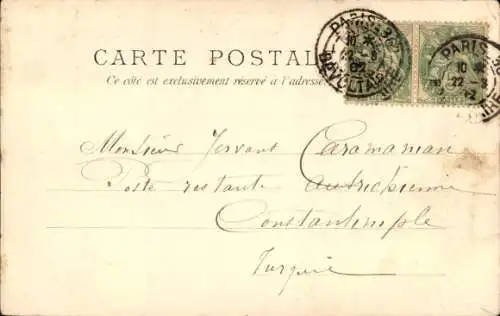 CARTE POSTALE
Ce côté est exclusivement réservé à l'adresse
PARIS
BD VOLTAIRE
PARIS
10
22
Monsieur Jervant Caramanian
Poste restante autrichienne
Constantinople
Turquie